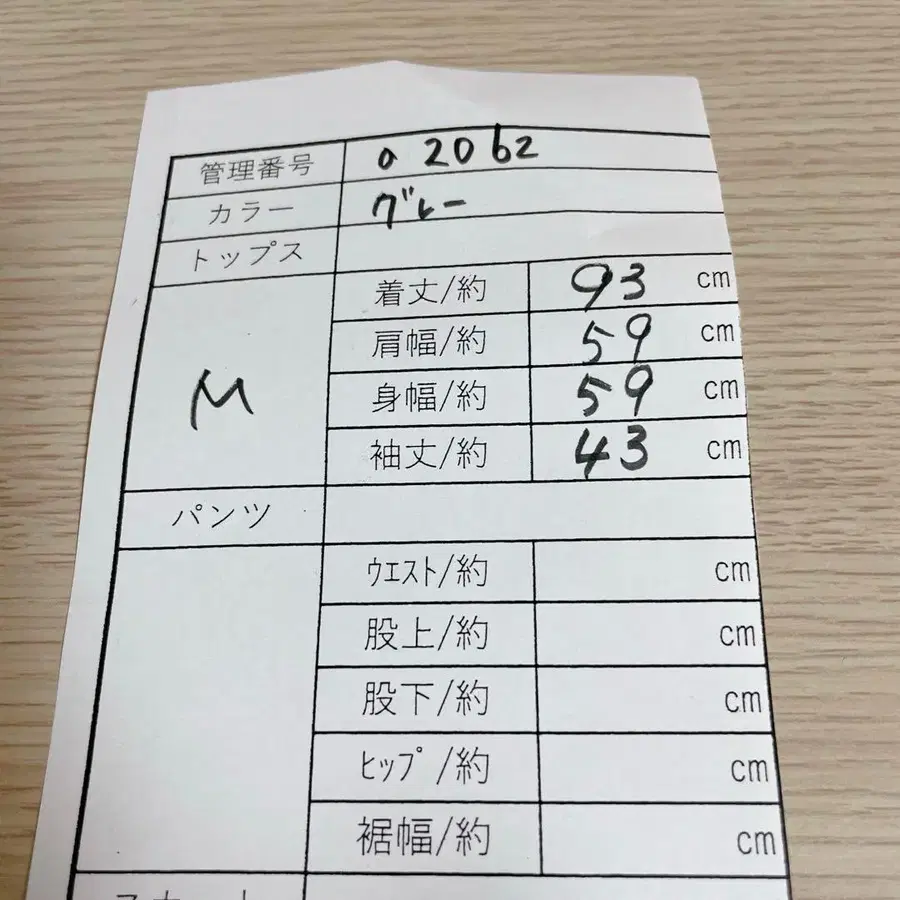 管理番号 a 2062
カラー グレー
トップス
M
着丈/約 93 cm
肩幅/約 59 cm
身幅/約 59 cm
袖丈/約 43 cm
パンツ
ウエスト/約 cm
股上/約 cm
股下/約 cm
ヒップ/約 cm
裾幅/約 cm